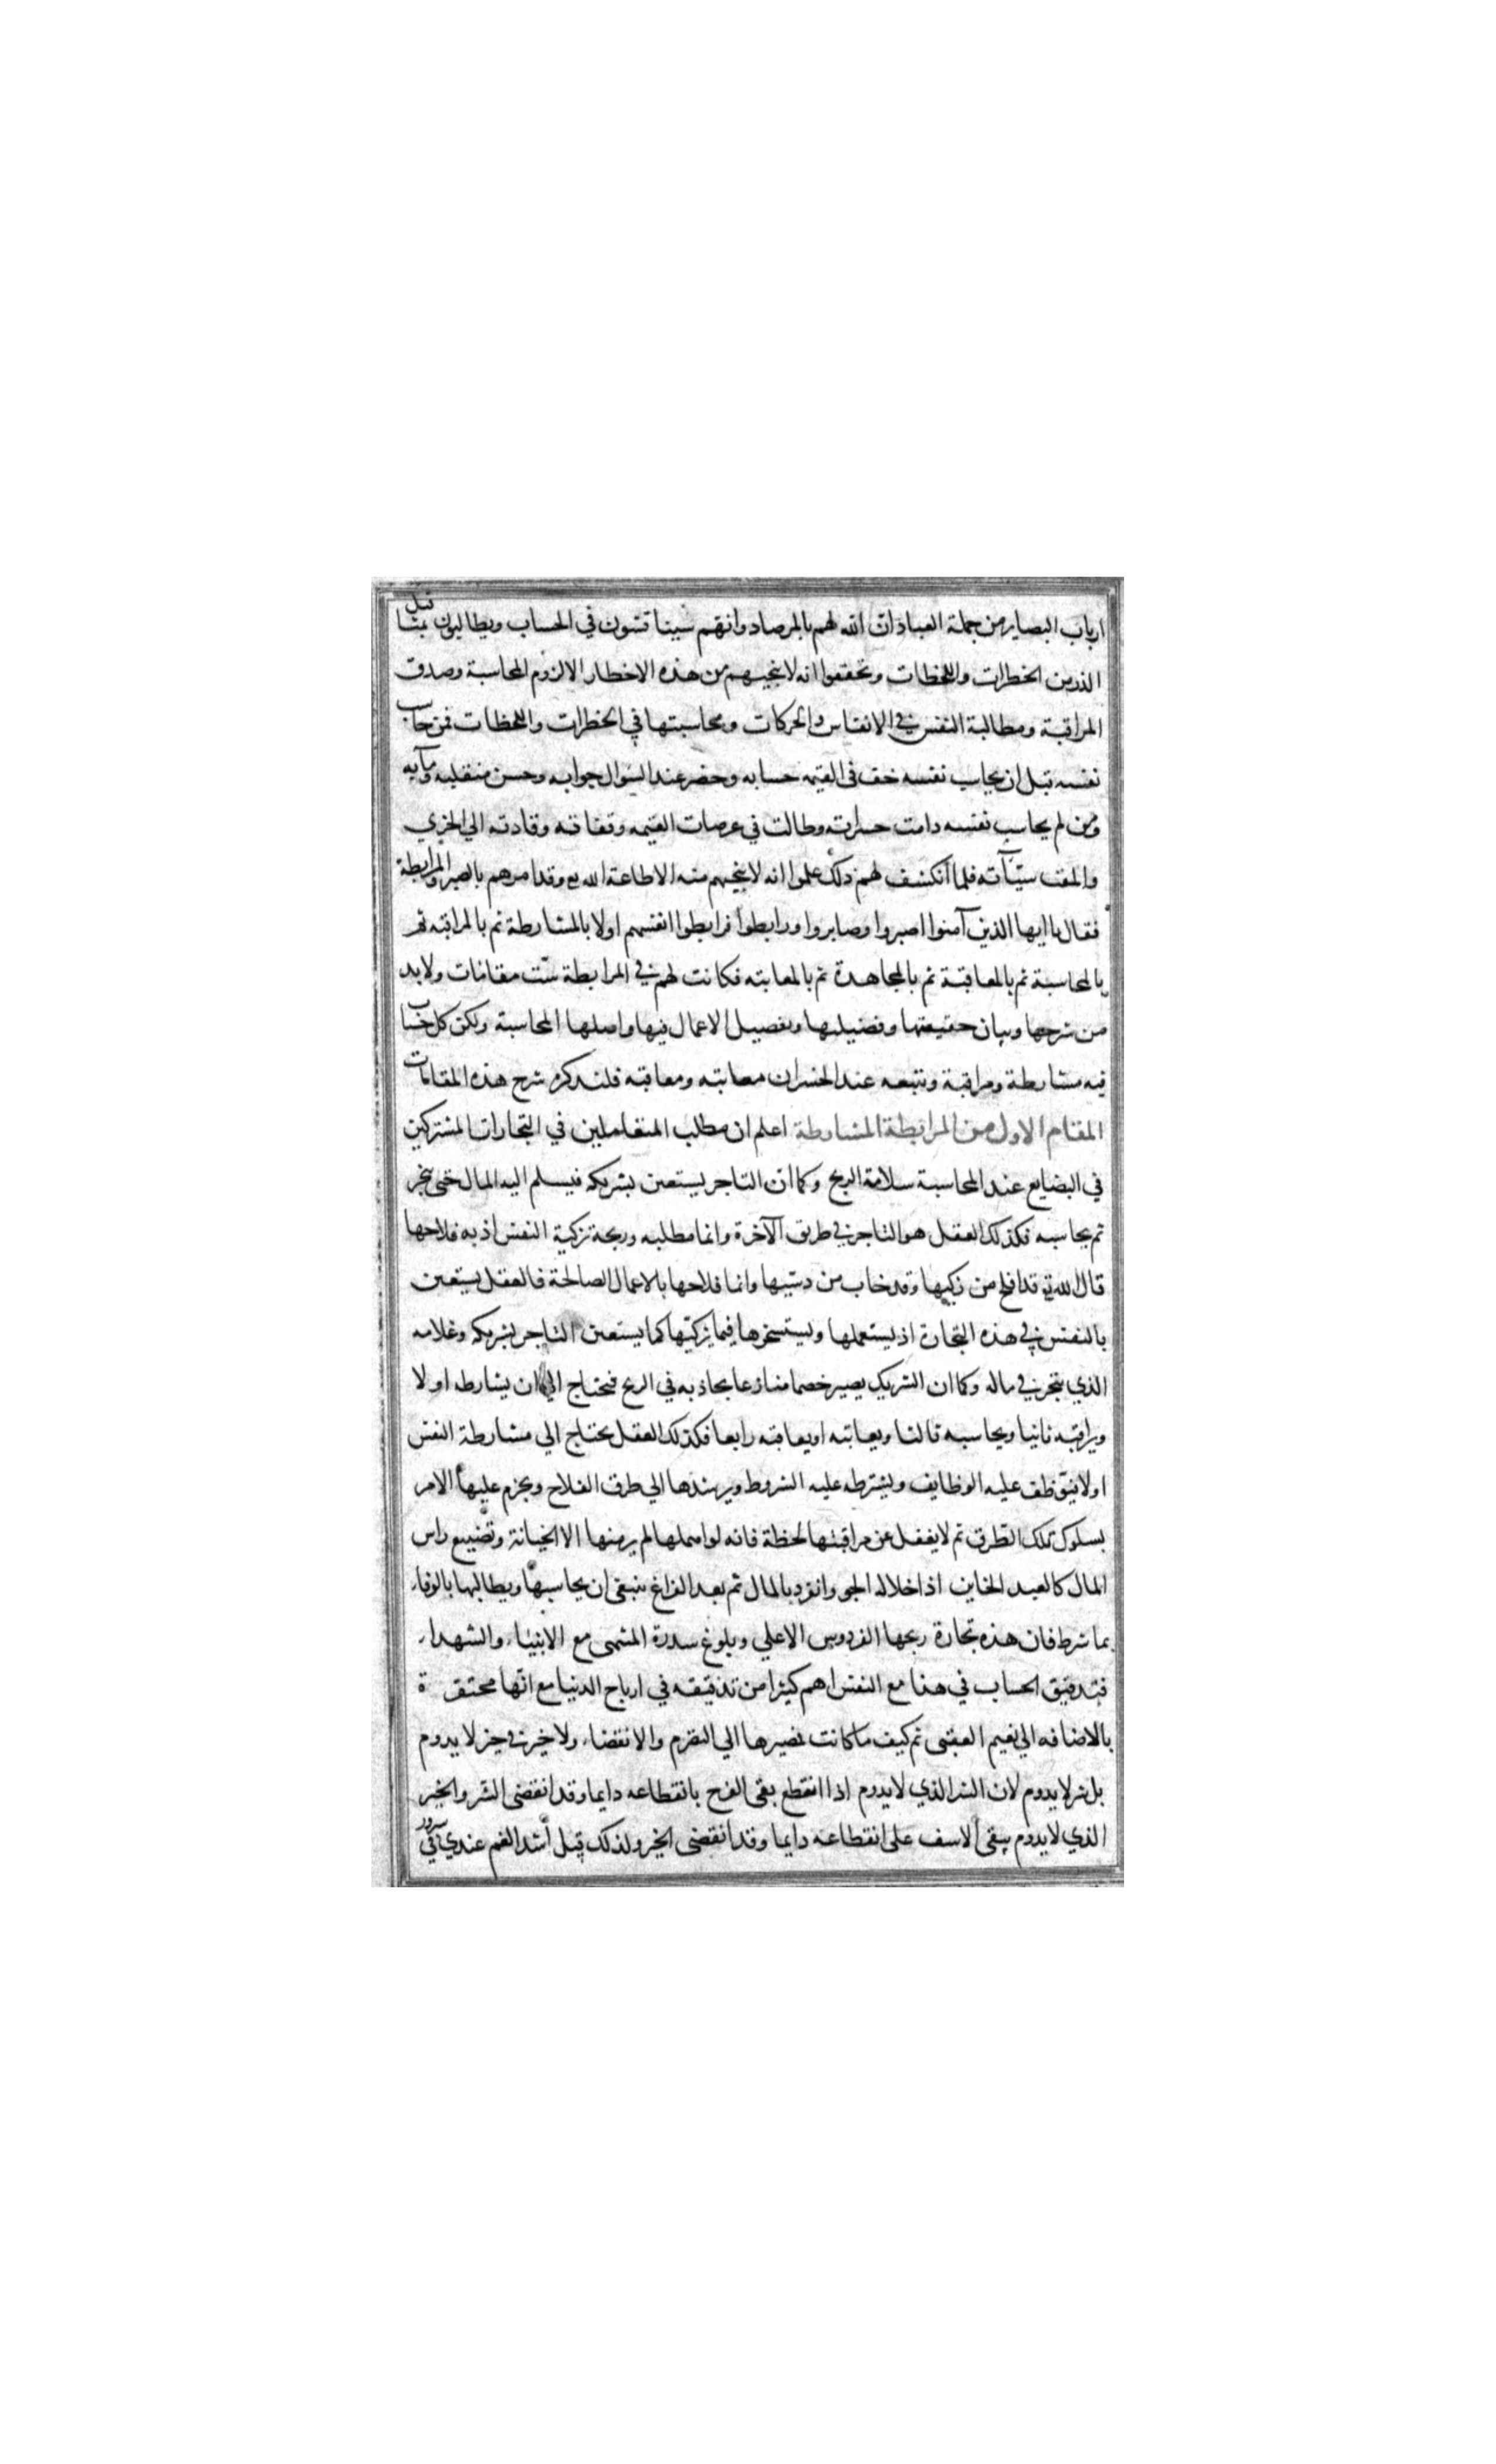 ارباب البصاير من جملة العباد ان الله لهم بالمرصاد وانهم سيناقشون في الحساب ويطالبون بمثاقيل
الذر من الخطرات واللحظات وتحققوا انه لا ينجيهم من هذه الاخطار الا لزوم المحاسبة وصدق
المراقبة ومطالبة النفس في الانفاس والحركات ومحاسبتها في الخطرات واللحظات فمن حاسب
نفسه قبل ان يحاسب نفسه خف في القيمة حسابه وحضر عند السؤال جوابه وحسن منقلبه ومآبه
ومن لم يحاسب نفسه دامت حسراته وطالت في عرصات القيمه وقفاته وقادته الي الخزي
والمقت سيئآته فلما انكشف لهم ذلك علموا انه لا ينجيهم منه الا طاعة الله تع وقد امرهم بالصبر والمرابطة
فقال ياايها الذين آمنوا اصبروا وصابروا ورابطوا فرابطوا انفسهم اولا بالمشارطة ثم بالمراقبه ثم
بالمحاسبة ثم بالمعاقبة ثم بالمجاهدة ثم بالمعاتبه فكانت لهم في المرابطة ست مقامات ولا بد
من شرحها وبيان حقيقتها وفضيلتها وتفصيل الاعمال فيها واصلها المحاسبة ولكن كل حساب
فيه مشارطة ومراقبة ويتبعه عند الخسران معاتبه ومعاقبه فلنذكر شرح هذه المقامات
المقام الاول من المرابطة المشارطة اعلم ان مطلب المتعاملين في التجارات المشتركين
في البضايع عند المحاسبة سلامة الربح وكما ان التاجر يستعين بشريكه فيسلم اليه المال حتى يتجر
ثم يحاسبه فكذلك العقل هو التاجر في طريق الآخرة وانما مطلبه وربحه تزكية النفس اذ به فلاحها
قال الله تع قد افلح من زكيها وقد خاب من دسيها وانما فلاحها بالاعمال الصالحة فالعقل يستعين
بالنفس في هذه التجارة اذ يستعملها ويستسخرها فيما يزكيها كما يستعين التاجر بشريكه وغلامه
الذي يتجر في ماله وكما ان الشريك يصير خصما منازعا يجاذبه في الربح فيحتاج الي ان يشارطه اولا
ويراقبه ثانيا ويحاسبه ثالثا ويعاتبه او يعاقبه رابعا فكذلك العقل يحتاج الي مشارطة النفس
اولا فيوظف عليه الوظايف ويشترطه عليه الشروط ويرشدها الي طرق الفلاح ويجزم عليها الامر
بسلوك تلك الطرق ثم لا يغفل عن مراقبتها لحظة فانه لو اهملها لم ير منها الا الخيانة وتضييع راس
المال كالعبد الخاين اذا خلا له الجو وانفرد بالمال ثم بعد الفراغ ينبغى ان يحاسبها ويطالبها بالوفاء
بما شرط فان هذه تجارة ربحها الفردوس الاعلي وبلوغ سدرة المنتهى مع الانبياء والشهداء
فتدقيق الحساب في هذا مع النفس اهم كثيرا من تدقيقه في ارباح الدنيا مع انها محتقرة
بالاضافه الي نعيم العقبى ثم كيف ما كانت فمصيرها الي التصرم والانقضاء ولا خير في خير لا يدوم
بل شر لا يدوم لان الشر الذي لا يدوم اذا انقطع بقى الفرح بانقطاعه دايما وقد انقضى الشر والخير
الذي لا يدوم يبقى الاسف على انقطاعه دايما وقد انقضى الخير ولذلك قيل اشد الغم عندي في سرور